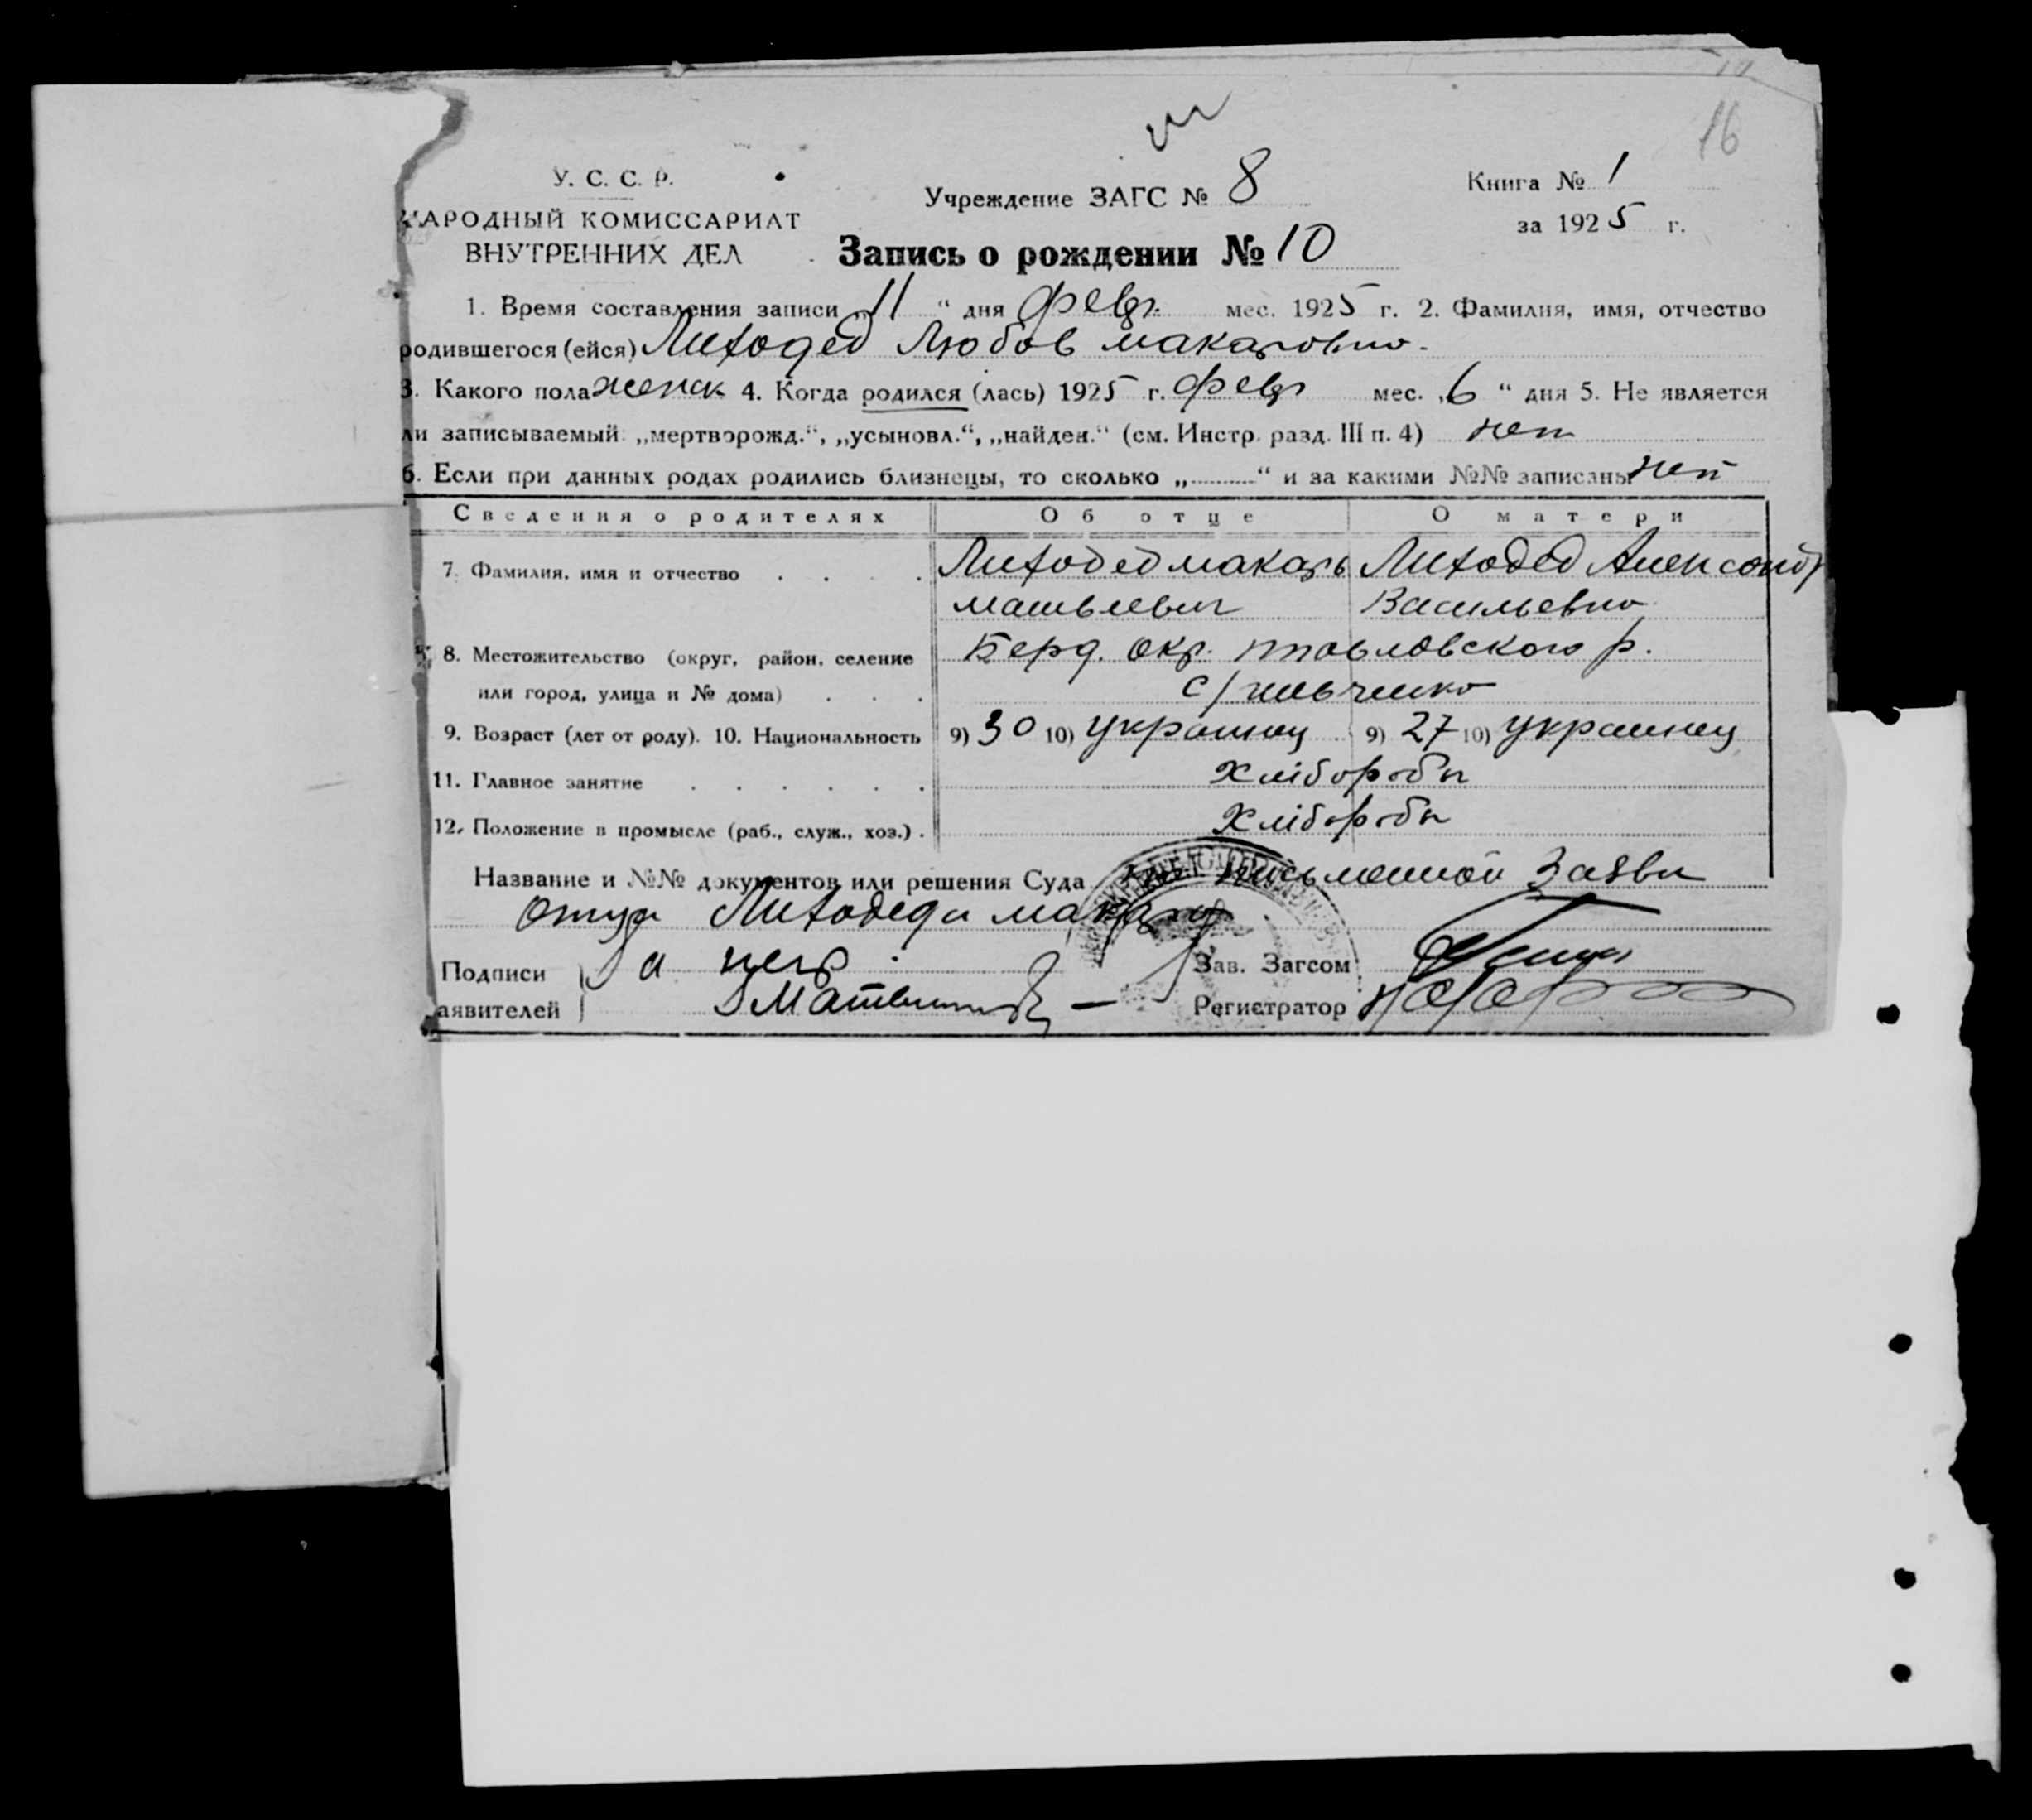 16
У. С. С. Р.
НАРОДНЫЙ КОМИССАРИАТ
ВНУТРЕННИХ ДЕЛ
Учреждение ЗАГС № 8
Книга № 1
за 1925 г.
Запись о рождении № 10
1. Время составления записи „11“ дня февр. мес. 1925 г. 2. Фамилия, имя, отчество
родившегося (ейся) Лиходед Любов макаровна.
3. Какого пола женск 4. Когда родился (лась) 1925 г. февр мес. „6“ дня 5. Не является
ли записываемый: „мертворожд.“, „усыновл.“, „найден.“ (см. Инстр. разд. III п. 4) нет
6. Если при данных родах родились близнецы, то сколько „ “ и за какими №№ записаны нет
Сведения о родителях Об отце О матери
7. Фамилия, имя и отчество Лиходед макарь Лиходед Александр
матьвеевич Васильевна
8. Местожительство (округ, район, селение Берд. окр. павловского р.
или город, улица и № дома)
9. Возраст (лет от роду). 10. Национальность 9) 30 10) украинец 9) 27 10) украинец
11. Главное занятие хлібороби
12. Положение в промысле (раб., служ., хоз.) хлібороби
Название и №№ документов или решения Суда письменной заяви
отца Лиходеда макара
Подписи За негр
аявителей
Зав. Загсом
Регистратор